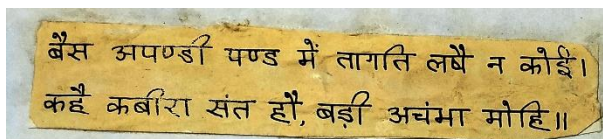 बैस अपण्डी पण्ड में तागति लषै न कोई।
कहै कबीरा संत हौ, बड़ी अचंभा मोहि॥